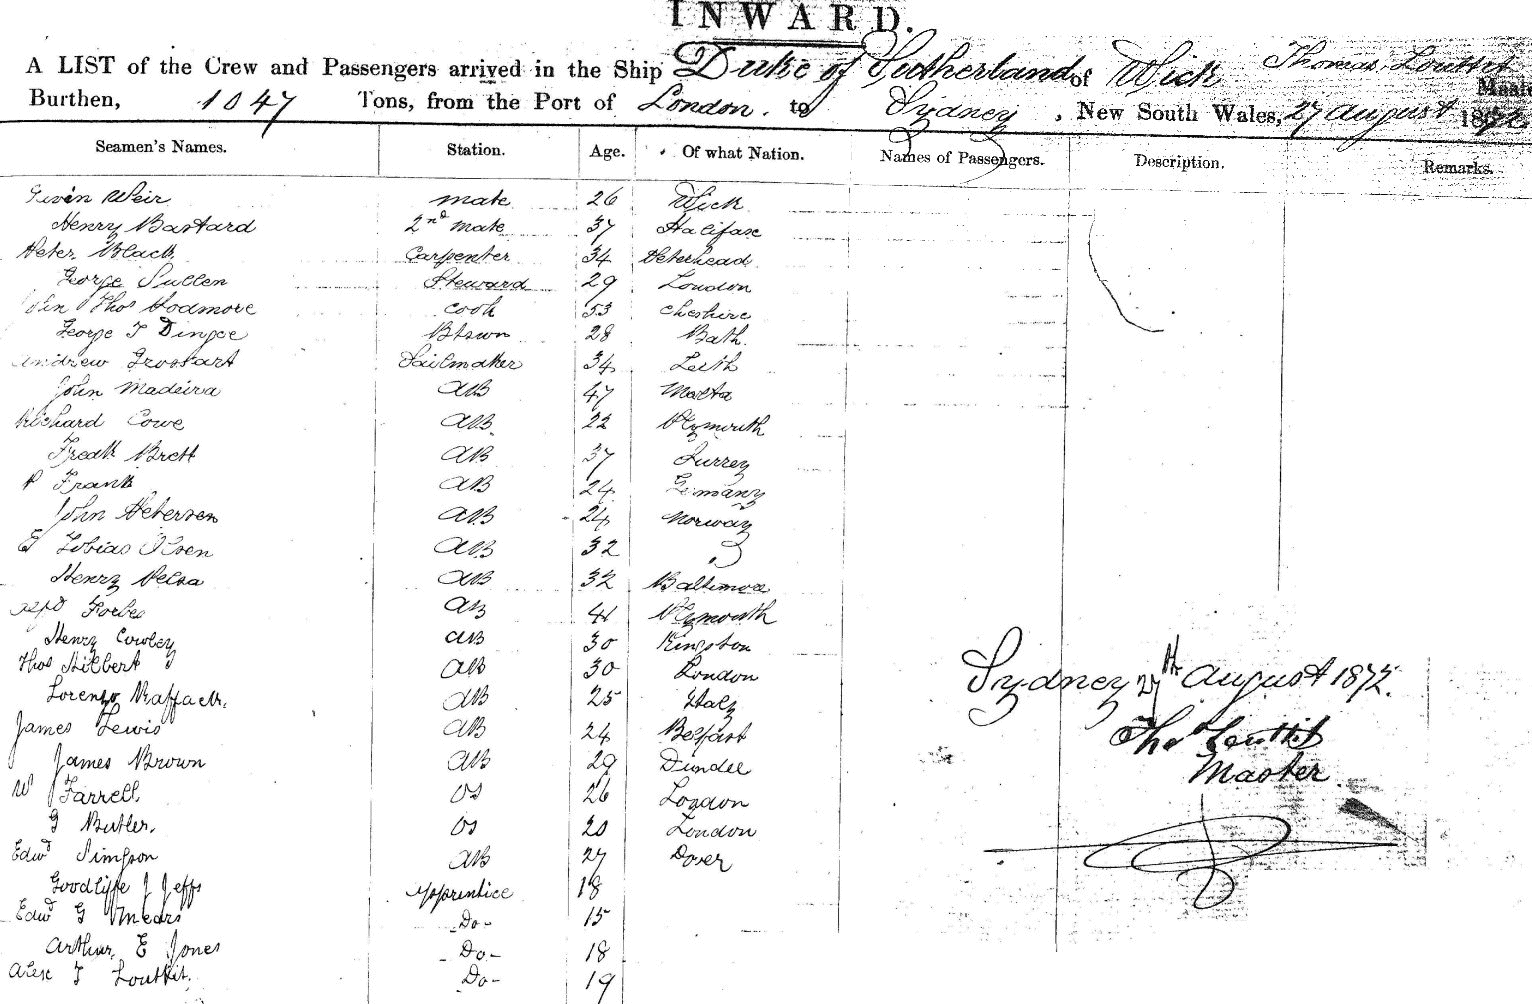 INWARD.
A LIST of the Crew and Passengers arrived in the Ship Duke of Sutherland of Wick Thomas Louttit
Burthen, 1047 Tons, from the Port of London. to Sydney, New South Wales, 27 August 1872.
Seamen's Names. Station. Age. Of what Nation. Names of Passengers. Description. Remarks.
Weir mate 26 Wick
Henry Bastard 2nd mate 37 Halifax
Peter Black Carpenter 34 Peterhead
George Pullen Steward 29 London
John Thos Hodmore cook 53 Cheshire
George T Dingee Btswn 28 Bath.
Andrew Sailmaker 34 Leith
John Madeira AB 47 Malta
Richard Cowe AB 22 Plymouth
Fredk Brett AB 37 Surrey
P Frank AB 24 Germany
John Petersen AB 24 Norway
Tobias Olsen AB 32
Henry AB 32 Baltimore
Forbes AB 41 Plymouth
Henry Cowley AB 30 Kingston
Thos Hilbert AB 30 London
Lorenzo AB 25 Italy
James Lewis AB 24 Belfast
James Brown AB 29 Dundee
W Farrell OS 26 London
G Butler. OS 20 London
Edwd Simpson AB 27 Dover
Goodliffe J Jeffs Apprentice 18
Edwd G Mears Do- 15
Arthur E Jones Do- 18
Alex T Louttit. Do- 19
Sydney 27th August 1872.
Thos Louttit
Master